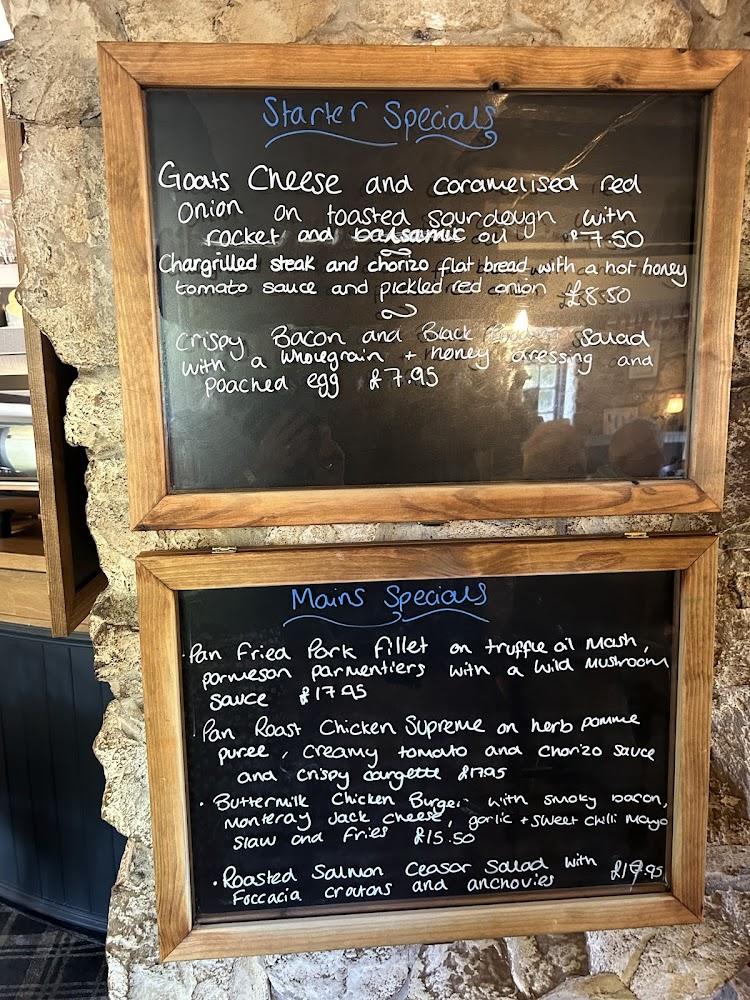 Starter Specials
Goats Cheese and caramelised red
onion on toasted sourdough with
rocket and balsamic oil £7.50
Chargrilled steak and chorizo flat bread with a hot honey
tomato sauce and pickled red onion £8.50
Crispy Bacon and Black Salad
with a wholegrain + honey dressing and
poached egg £7.95
Mains Specials
· Pan Fried Pork fillet on truffle oil Mash,
parmesan parmentiers with a wild mushroom
sauce £17.95
· Pan Roast Chicken Supreme on herb pomme
puree, creamy tomato and chorizo sauce
and crispy courgette £17.95
· Buttermilk Chicken Burger with smoky bacon,
Monteray Jack cheese, garlic + sweet chilli Mayo
slaw and fries £15.50
· Roasted Salmon ceasar salad with
Foccacia croutons and anchovies